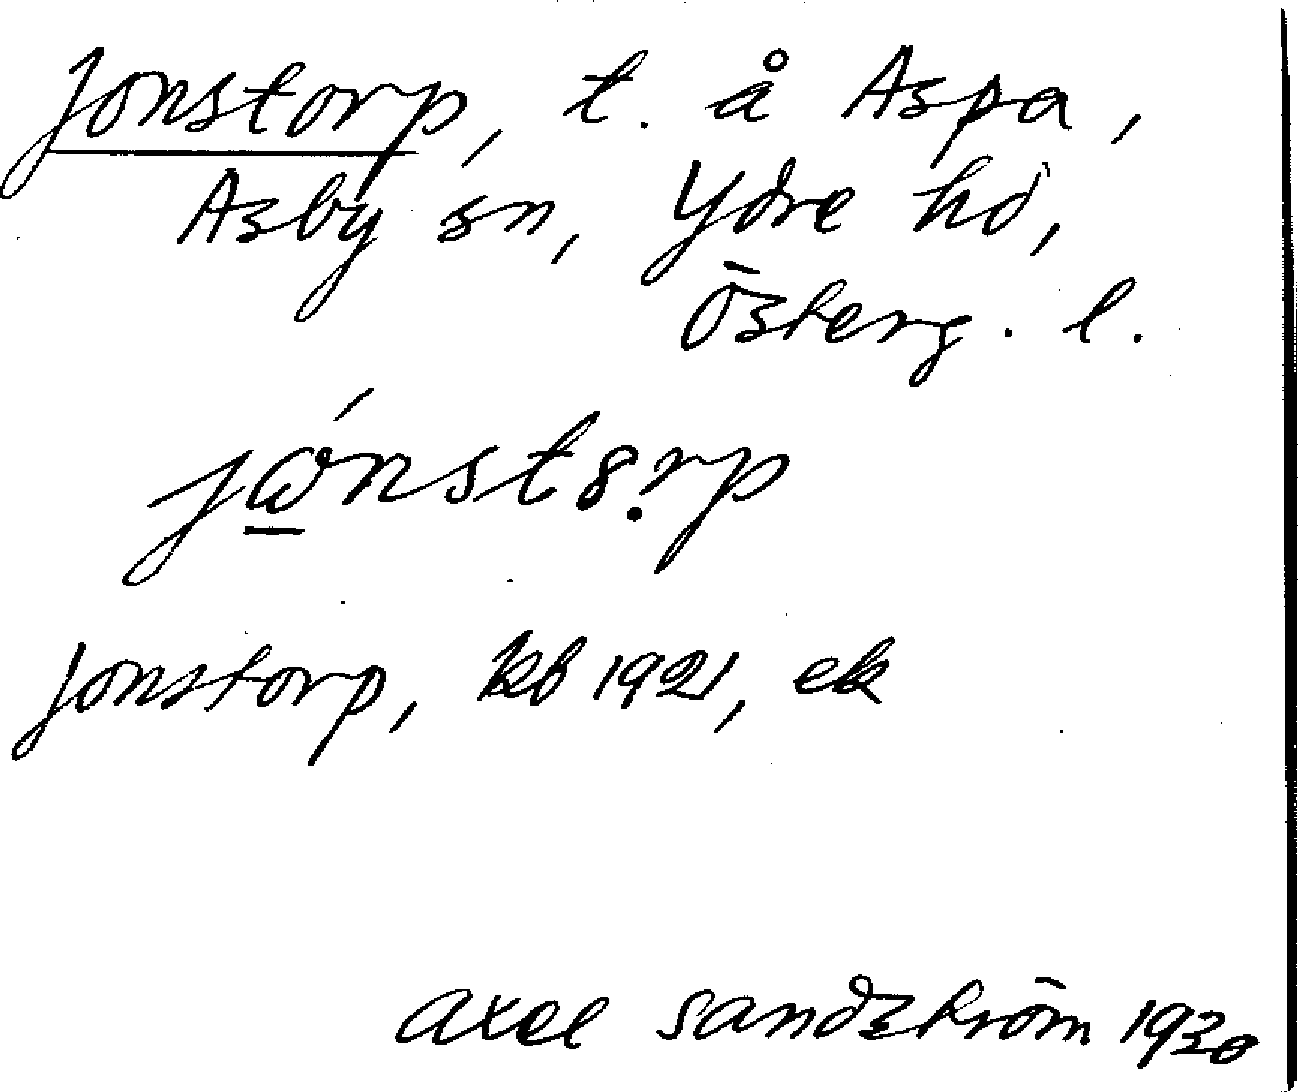 Jonstorp, t. å Aspa,
Asby sn, Ydre hd,
Österg. l.
Jonstorp, kb 1921, ek
Axel Sandström 1930